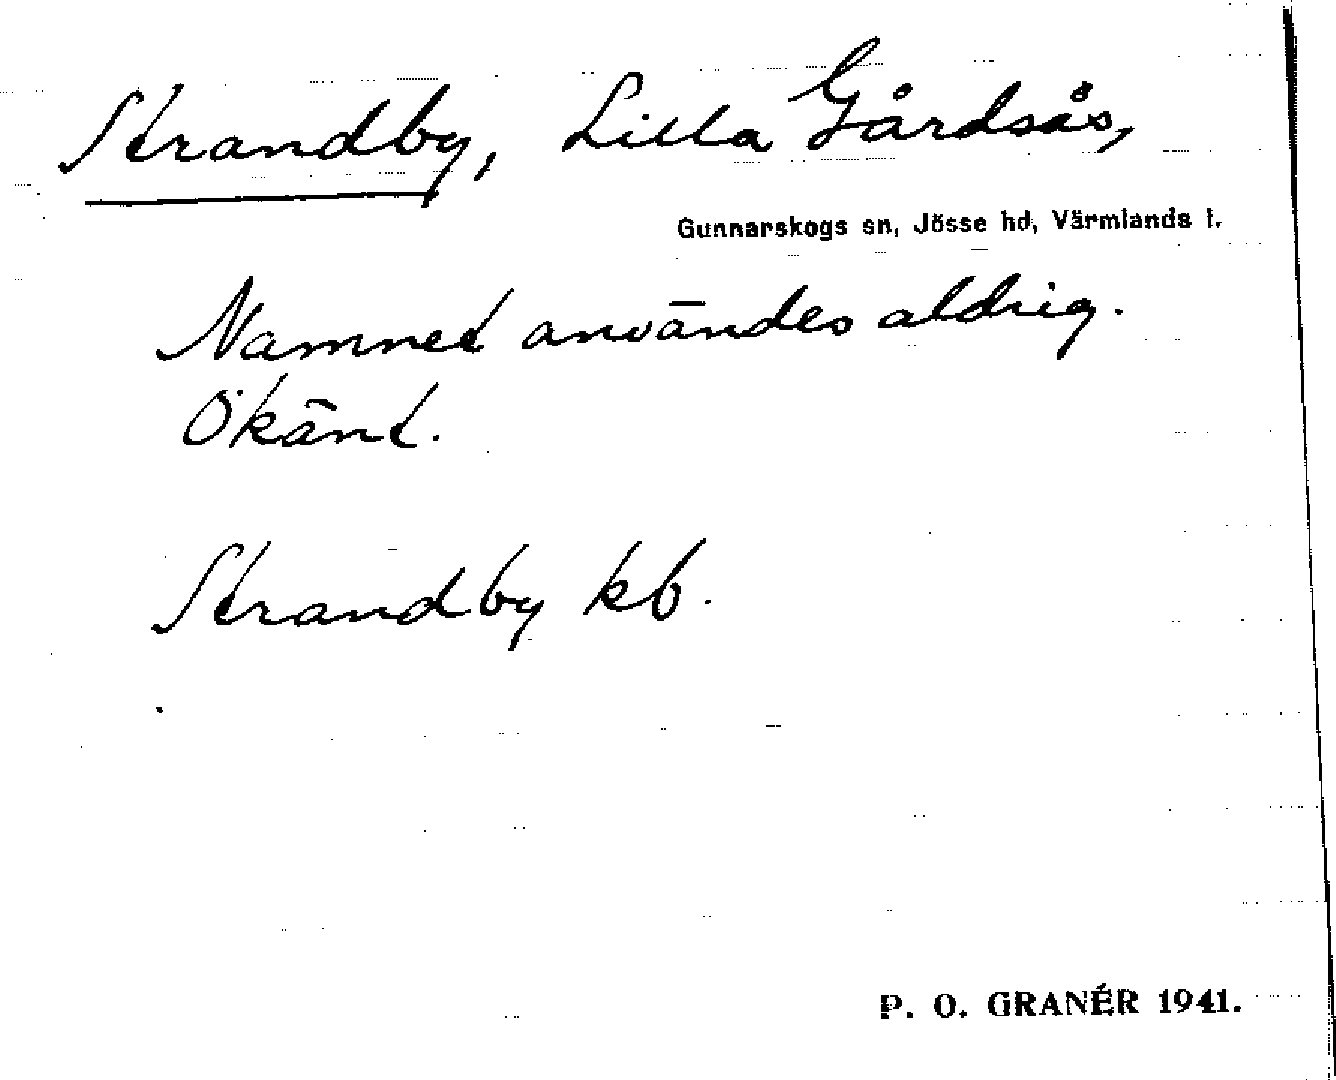 Strandby, Lilla Gårdsås,
Gunnarskogs sn, Jösse hd, Värmlands l.
Namnet användes aldrig.
Okänt.
Strandby kb.
P. O. GRANÉR 1941.